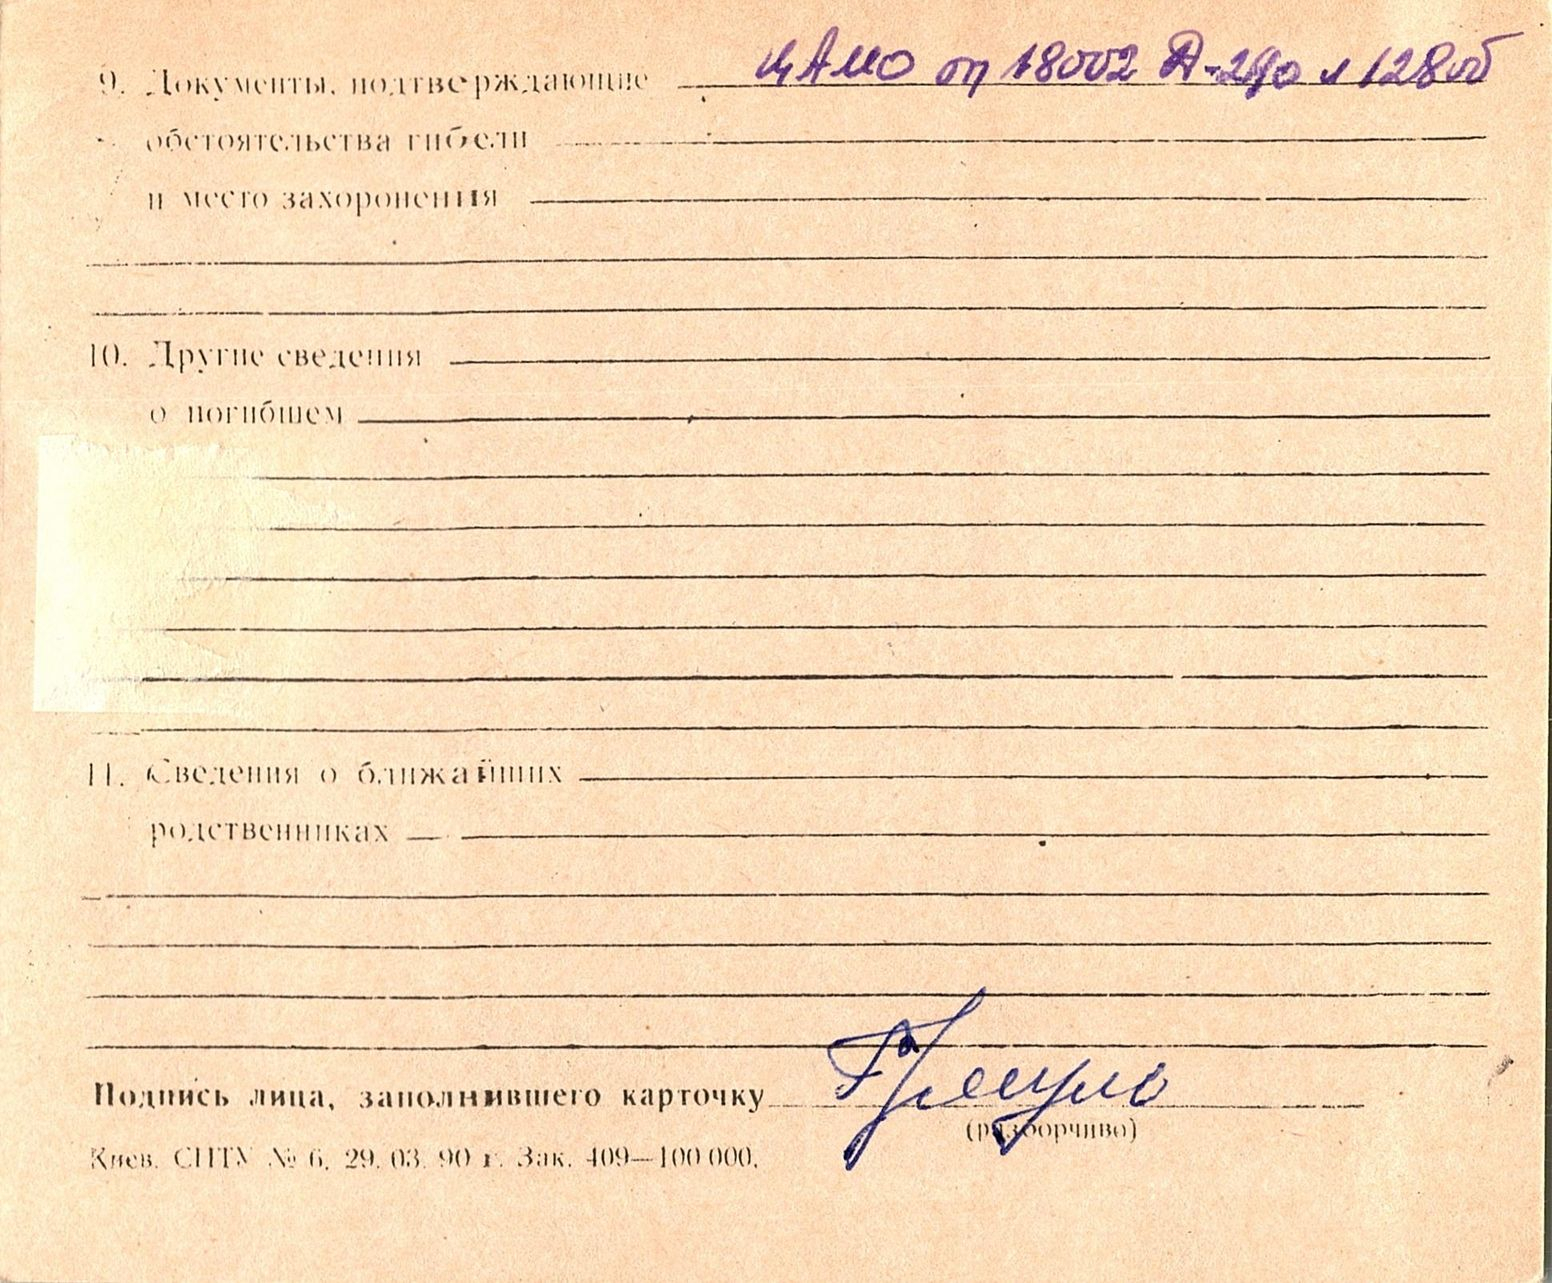 9. Документы, подтверждающие ЦАМО оп 18002 Д-290 л 128об
обстоятельства гибели
и место захоронения
10. Другие сведения
о погибшем
11. Сведения о ближайших
родственниках
Подпись лица, заполнившего карточку
(разборчиво)
Киев. СПТУ № 6. 29. 03. 90 г. Зак. 409—100 000.